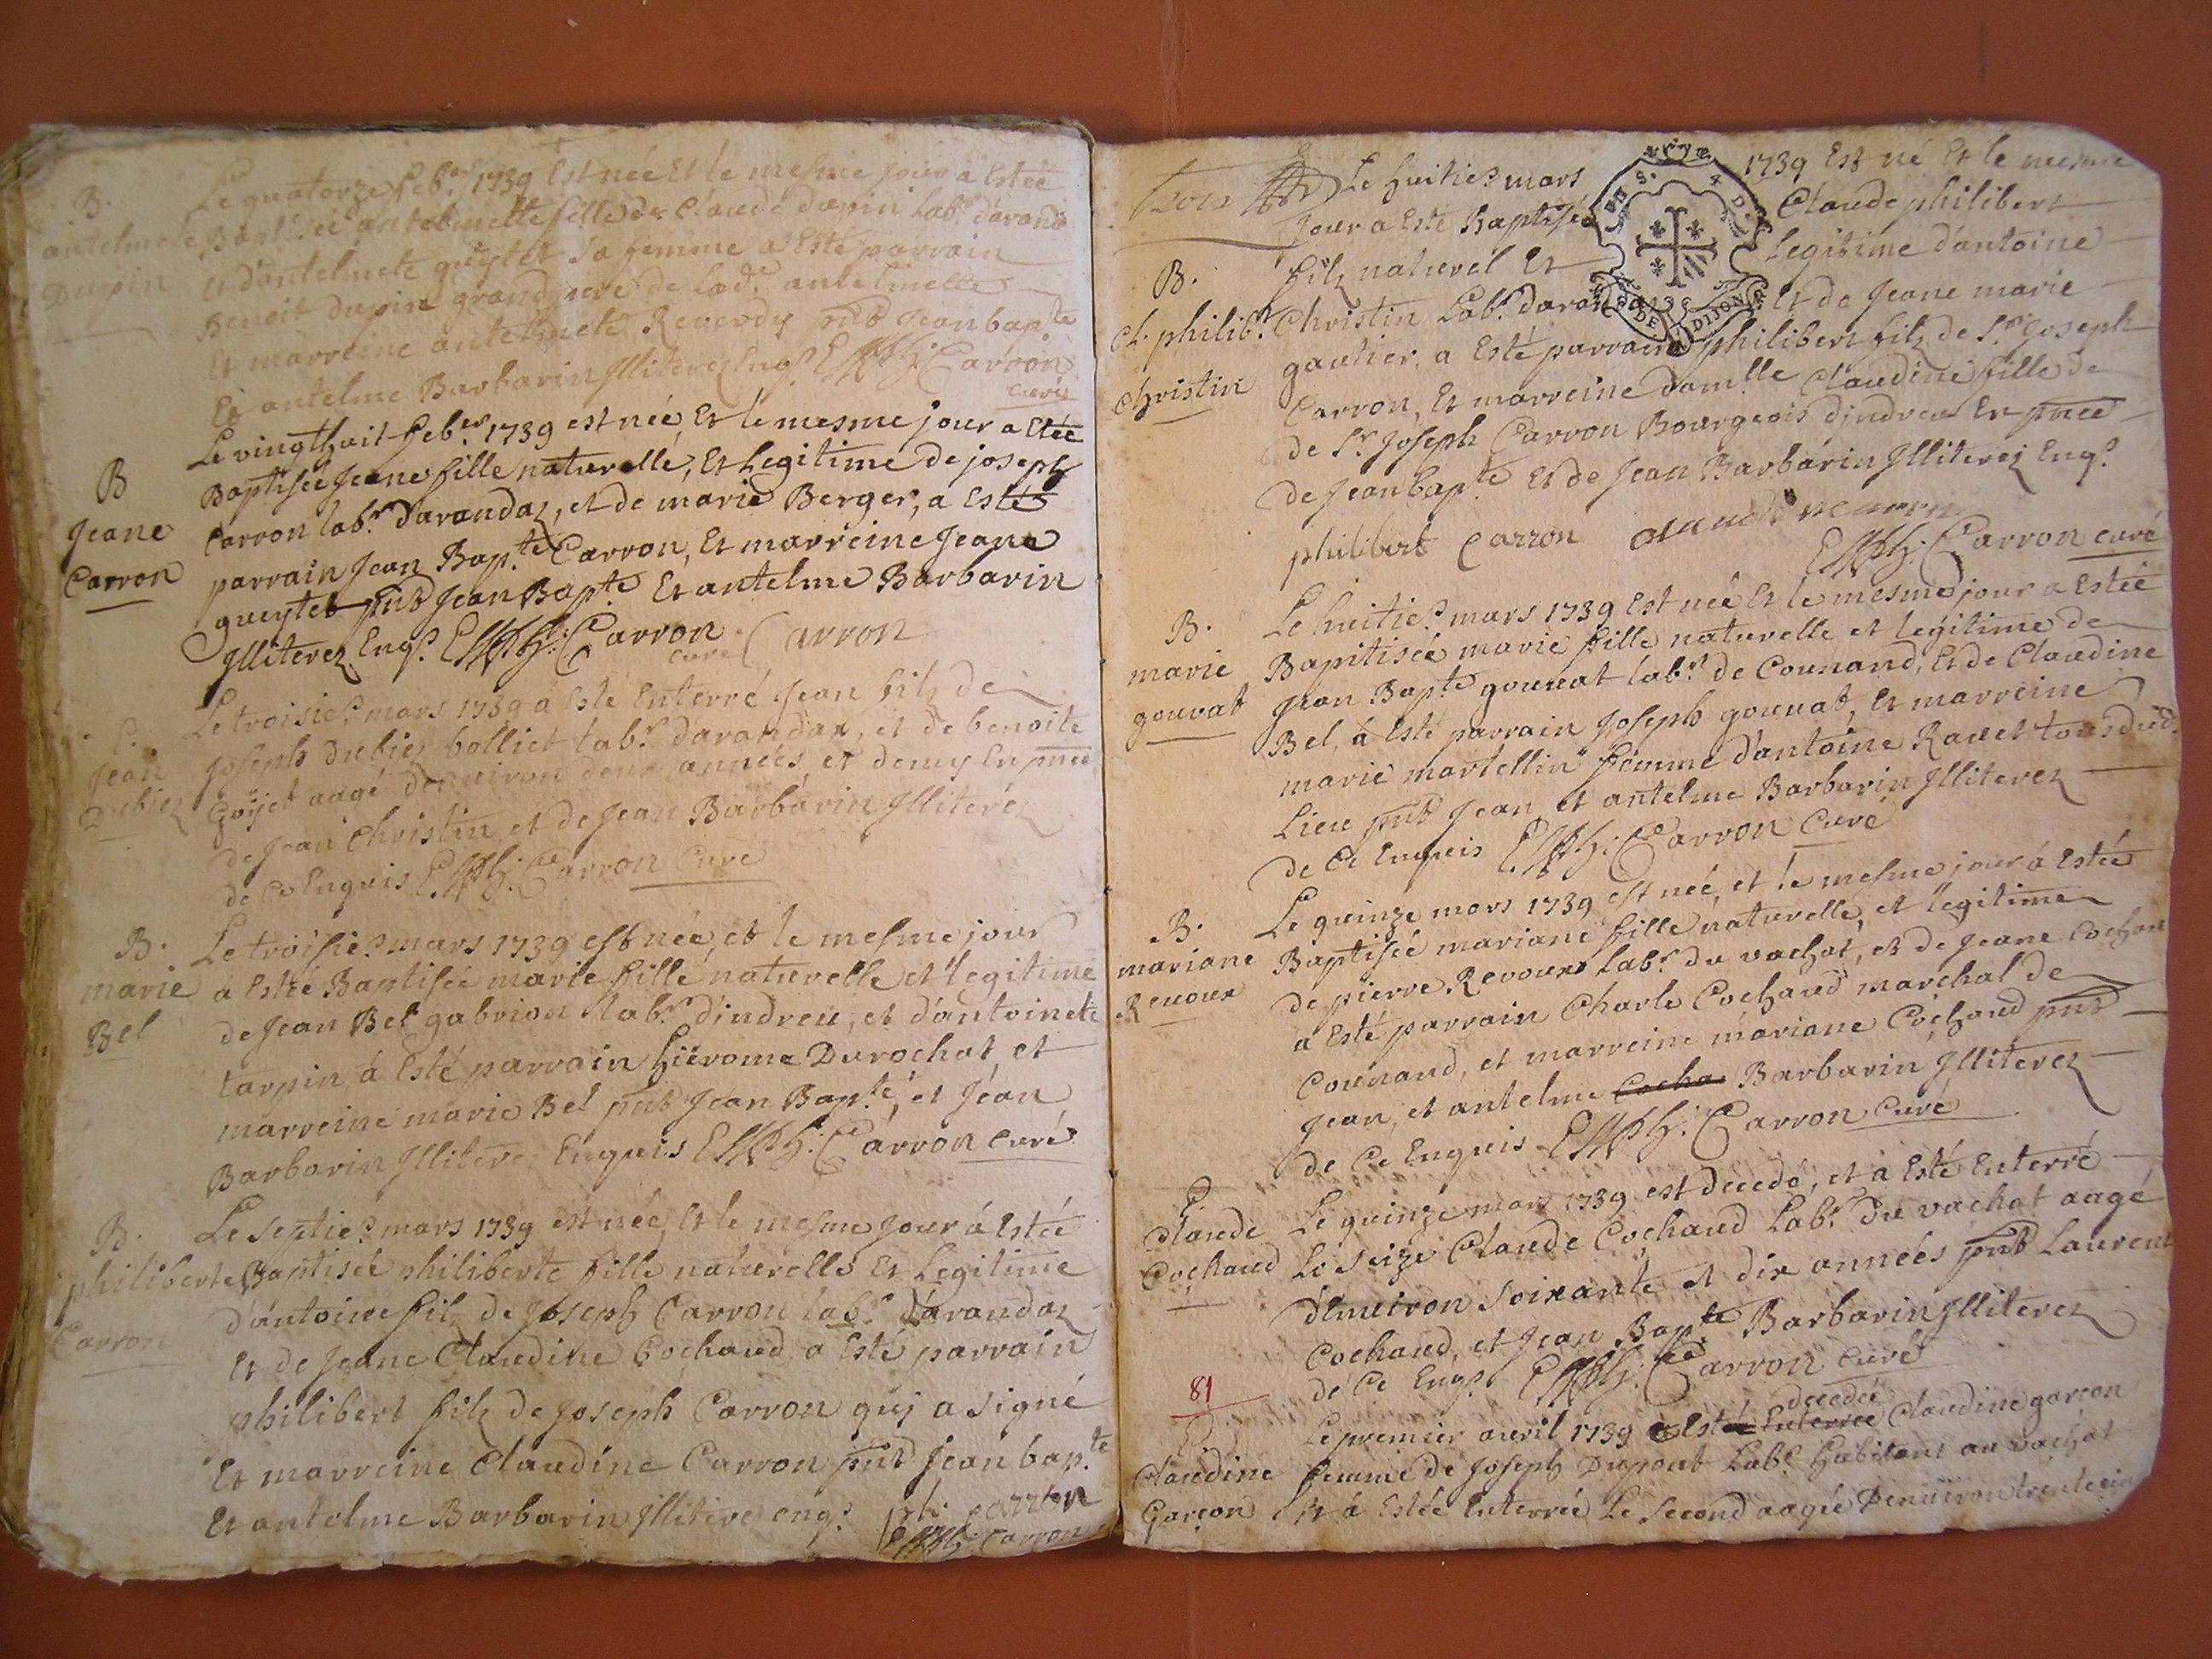 B.
antelmete
Dupin
Le quatorze feb.er 1739 Est née Et le mesme jour a Estée
Bapt.sée antelmette fille de Claude dupin Lab.r d'arandaz
Et d'antelmete queytet sa femme a Esté parrain
Benoit dupin grand pere de lad.e antelmette
Et marreine antelmete Reverdy pnt Jean bap.te
Et antelme Barbarin Illiterez Enq.s Carron
curé
B
Jeane
Carron
Le vingthuit feb.er 1739 est née, Et le mesme jour a Etée
Baptisée Jeane fille naturelle, Et Legitime de joseph
Carron lab.r d'arandaz, et de marie Berger, a Esté
parrain Jean Bap.te Carron, Et marreine Jeane
queytet pnt Jean Bap.te Et antelme Barbarin
Illiterez Enq.s Carron Carron
curé
E.
Jean
Dubiez
Le troisie.e mars 1739 a Esté Enterré Jean filz de
Joseph Dubiez bolliet lab.r d'arandaz, et de benoite
Goÿet aagé d'enuiron deux années, et demy En pnce
de Jean Christin, et de Jean Barbarin Illiteréz
de Ce Enquis Carron Curé
B.
marie
Bel
Le troisie.e mars 1739 est née, et le mesme jour
a Estée Baptisée marie fille naturelle et Legitime
de Jean Bel gabrion lab.r d'indreu, et d'antoinete
tarpin, a Esté parrain hierome Durochat, et
marreine marie Bel pnt Jean Bap.te, et Jean
Barbarin Illiterez Enquis Carron curé
B.
philiberte
Carron
Le septie.e mars 1739 est née, Et le mesme Jour a Estée
Baptisée philiberte fille naturelle Et Legitime
d'antoine filz de Joseph Carron lab.r d'arandaz
Et de Jeane Claudine Cochaud, a Esté parrain
philibert filz de Joseph Carron qui a signé
Et marreine Claudine Carron pnt Jean bap.te
Et antelme Barbarin Illiterez enq.s ph. carron
Carron
trois
B.
Cl. philib.t
Christin
Le huitie.e mars 1739 Est né Et le mesme
Jour a Esté Baptisé Claude philibert
filz naturel Et Legitime d'antoine
Christin Lab.r d'arandaz Et de Jeane marie
gautier, a Esté parrain philibert filz de S.r Joseph
Carron, Et marreine dam.lle Claudine fille de
de S.r Joseph Carron Bourgeois d'indreu En pnce
de Jean bap.te Et de Jean Barbarin Illiterez Enq.s
philibert carron claudine carron
Carron curé
DES. 4 D.
DE DIJON
B.
marie
gouvat
Le huitie.e mars 1739 Est née Et le mesme jour a Estée
Bapitisée marie fille naturelle et legitime de
Jean Bap.te gouuat lab.r de Counand, Et de Claudine
Bel, a Esté parrain Joseph gouuat, Et marreine
marie martellin femme d'antoine Rauet tous dud.
Lieu pnt Jean et antelme Barbarin Illiterez
de Ce Enquis Carron Curé
B.
mariane
Reuoux
Le quinze mars 1739 est née, et le mesme jour a Estée
Baptisée mariane fille naturelle, et legitime
de pierre Revoux Lab.r du vachat, et de Jeane Cochaud
a Esté parrain Charle Cochaud marchal de
Counand, et marreine mariane Cochaud pnt
Jean, et antelme Cocha Barbarin Illiterez
de Ce Enquis Carron Curé
E.
Claude
Cochaud
Le quinze mars 1739 est decedé, et a Esté Enterré
Le seize Claude Cochaud Lab.r du vachat aagé
d'Enuiron soixante et dix années pnt Laurent
Cochaud, et Jean Bap.te Barbarin Illiterez
de Ce Enq.s Carron Curé
81
Claudine
Garçon
decedée
Le premier auril 1739 Est Enterrée Claudine garçon
femme de Joseph Dupont Lab.r habitant au vachat
Et a Estée Enterrée Le second aagée D'enuiron